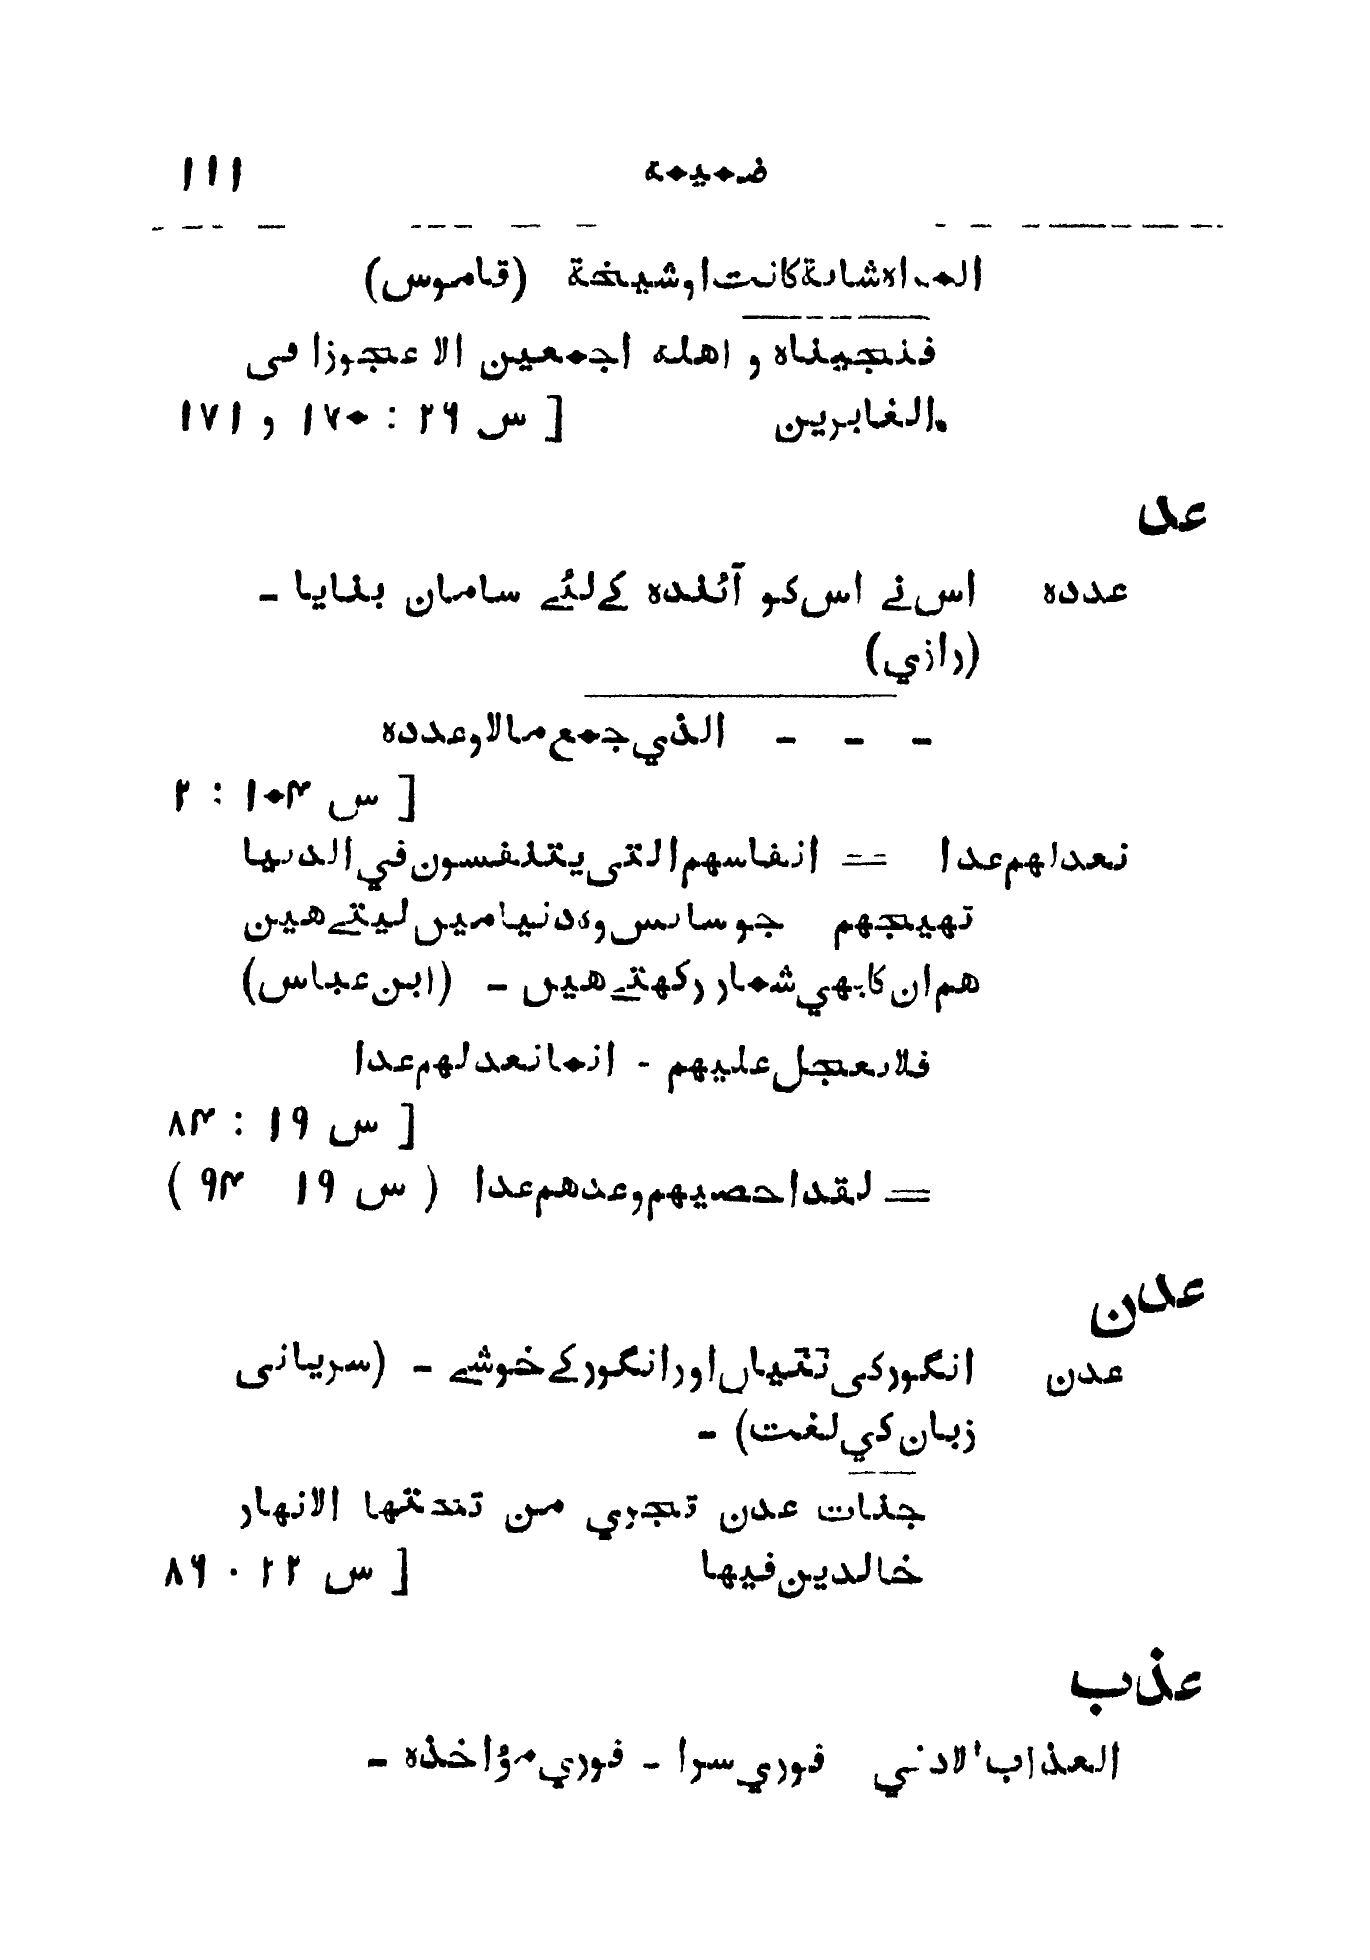 ضمیمة ۱۱۱
المراه شابة کانت او شیخة (قاموس)
فنجیناه و اهله اجمعین الا عجوزا فی
الغابرین [ س ۲۶ : ۱۷۰ و ۱۷۱
عد
عدده اس نے اس کو آئندہ کے لئے سامان بنایا ـ
(رازي)
ـ ـ ـ الذي جمع مالا و عدده
[ س ۱۰۴ : ۲
نعد لهم عدا == انفاسهم التی یتنفسون في الدنیا
تهیجهم جو سانس وه دنیا میں لیتے هین
هم ان کا بهي شمار رکهتے هیں ـ (ابن عباس)
فلا تعجل علیهم - انما نعد لهم عدا
[ س ۱۹ : ۸۴
== لقد احصیهم و عدهم عدا ( س ۱۹ ۹۴ )
عدن
عدن انگور کی تٹیاں اور انگور کے خوشے ـ (سریانی
زبان کي لغت) ـ
جنات عدن تجري من تحتها الانهار
خالدین فیها [ س ۲۲ ۰ ۸۶
عذب
العذاب الادني فوري سزا ـ فوري مؤاخذه ـ